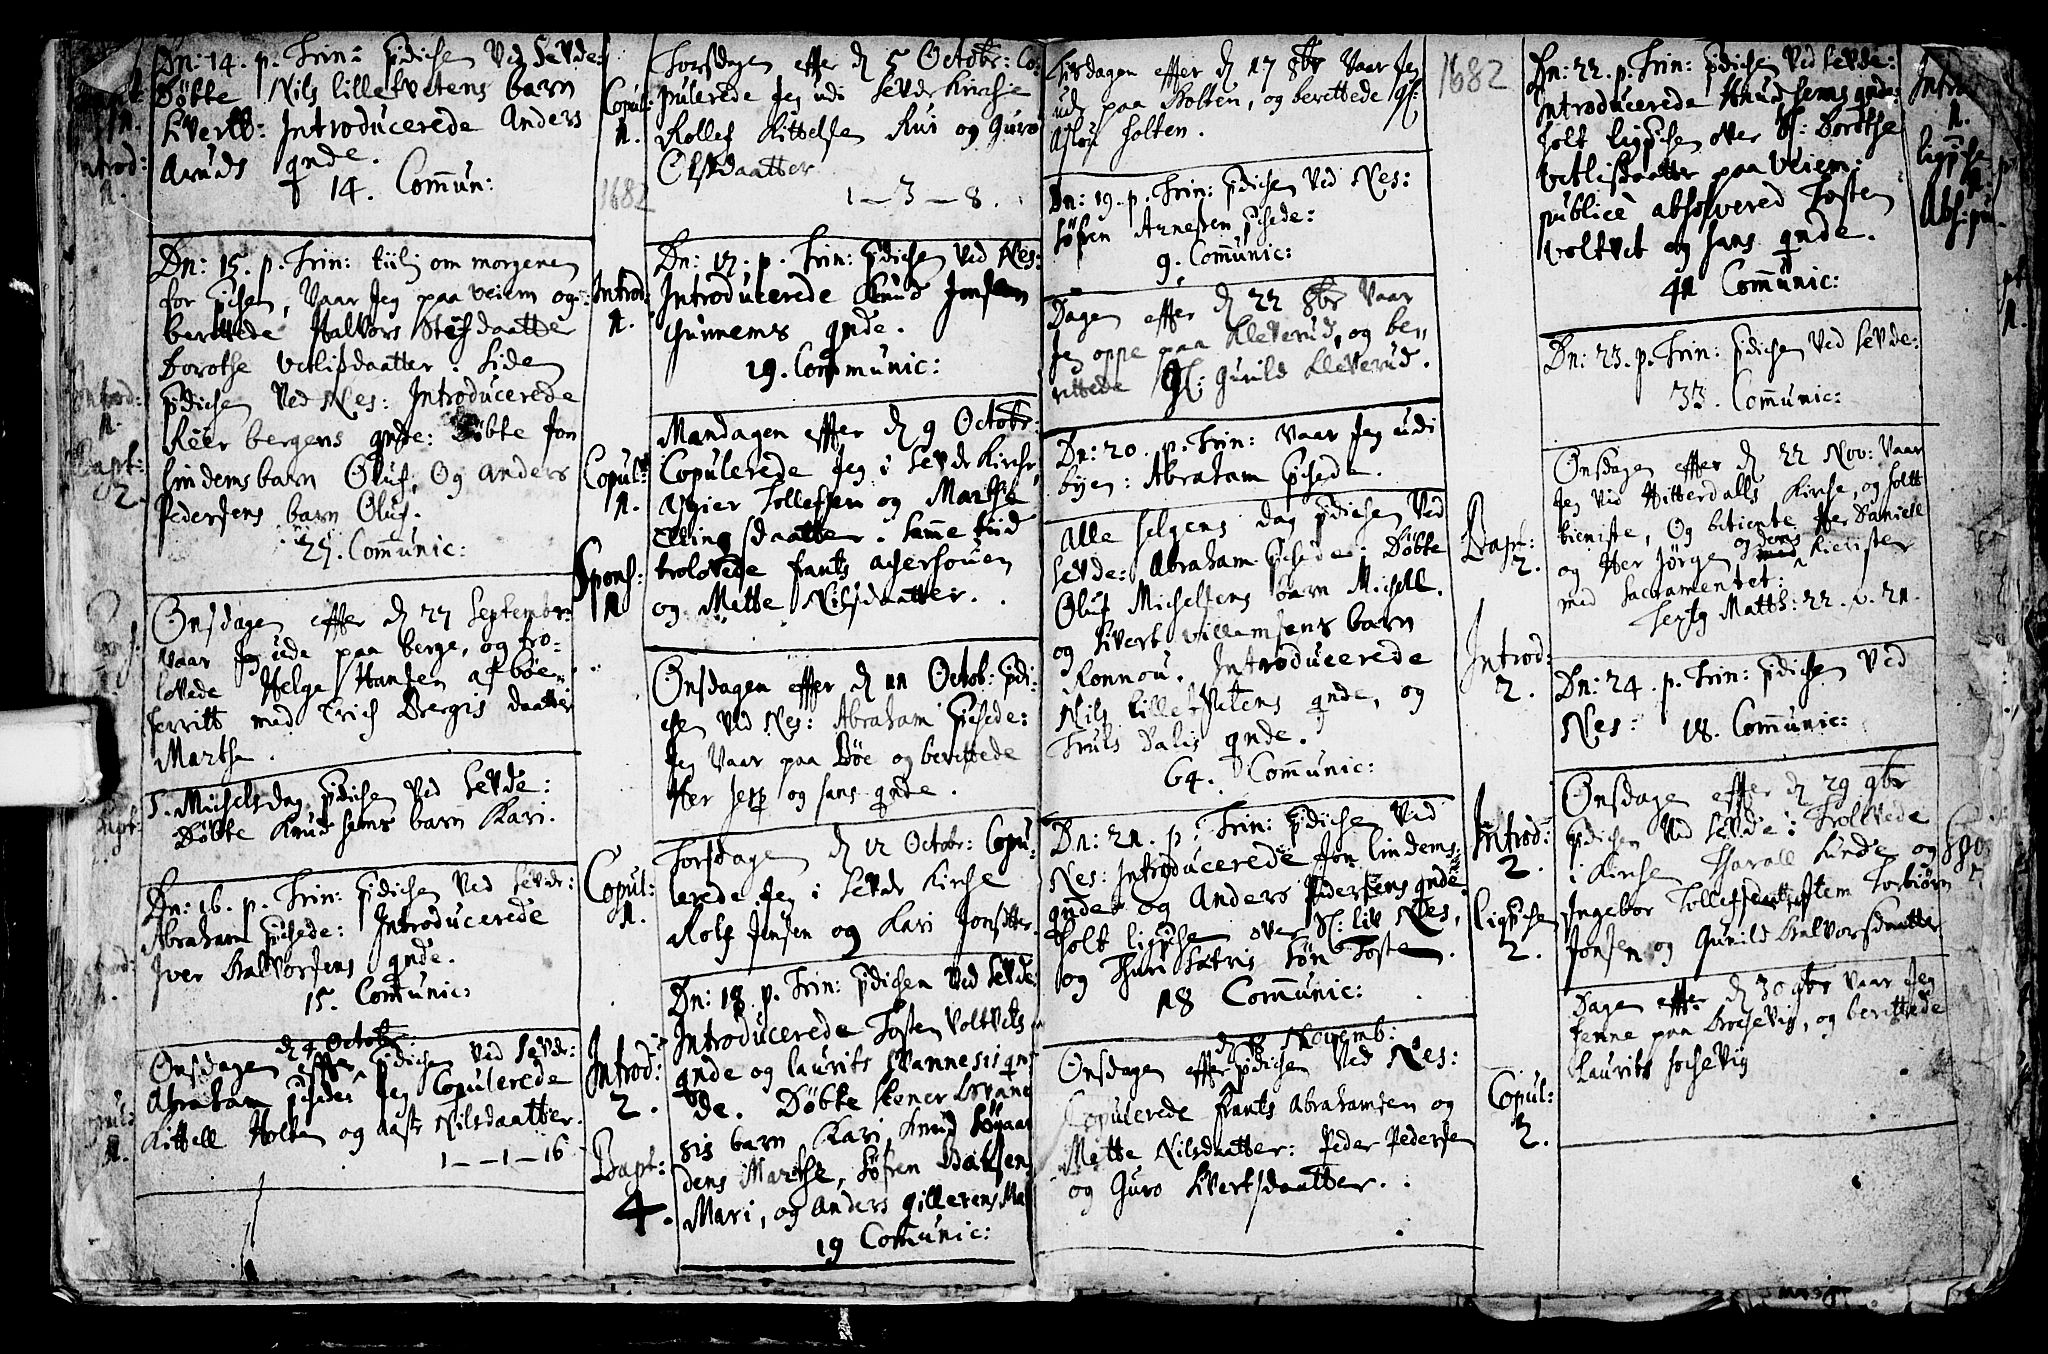 Dn: 14. p. Trin: prædichen Ved Sevde:
Døbte Nils lillefvetens barn
Livertt: Introducerede Anders
Aruds qnde.
14. Com̄un:
Introd:
1.
Dn: 15. p. Trin: tiilj om morgenen
for prædichen, Vaar Jeg paa Veiem og
berettede Halvors Stefsdaatter
Dorothe Vetlisdaatter. Siden
prædichen Ved Nes: Introducerede
Reer bergens qnde: Døbte Jon
Lindemsbarn Oluf, Og Anders
Pedersens barn Oluf.
25. Com̄unic:
Introd:
1.
Bapt:
2.
Onsdagen effter d 27 Septembr:
Vaar Jeg ude paa berge, og tro-
lovede Helge Hansen af bøe
herritt med Erich Bergis daatter
Marthe.
S. Michelsdag prædichen Ved Sevde:
Døbte Knud Sems barn Kari.
Bapt:
Dn: 16. p. Trin: prædichen Ved Sevde:
Abraham prædichede: Introducerede
Iver Halvorsens qnde.
15. Com̄unic:
d 4 Octobr:
Onsdagen effter prædichen Ved Sevde:
Abraham prædichede, Jeg Copulerede
Kittell Holten og Aaste Nilsdaatter.
1 - - 1 - 16
Copul:
1.
1682
Torsdagen effter d 5 Octobr: Co-
pulerede Jeg udi Sevde Kirche
Rollef Kittelsen Rui og Guro
Olsdaatter
1 - 3 - 8.
Introd:
1.
Dn: 17. p. Trin: prædichen Ved Nes:
Introducerede Knud Jonsen
Gunnems qnde.
19. Communic:
Copul:
1.
Spons:
1
Mandagen effter d 9 Octobr:
Copulerede Jeg i Sevde Kirche
Asgier Tollefsen og Marthe
Ellingsdaatter. Sam̄e tiid
trolovede Frants Agersouen
og Mette Nilsdaatter.
Onsdagen effter d 11 Octob: prædi-
chen Ved Nes: Abraham prædichede:
Jeg Vaar paa Bøe og berettede
Her Jesp og hans qnde.
Copul:
1.
Torsdagen d 12 Octobr: Copu-
lerede Jeg i Sevde Kirche
Rolf Jensen og Kari Jonsdtter.
Introd:
2.
Bapt:
4.
Dn: 18. p. Trin: prædichen Ved Sevde:
Introducerede Tosten Voltvets
qnde og Laurits Svannesis qn-
de. Døbte Stener Svane
sis barn Kari, Knud
dens Marthe, Søfren
Mari, og Anders Gillerens
19 Com̄unic:
Tirsdagen effter d 17 8br Vaar Jeg
ude paa Holten, og berettede Sl:
Aslou Holten.
Dn: 19. p. Trin: prædichen Ved Nes:
Søfren Arnesen prædichede:
9. Com̄unic:
Dagen effter d 22 8br Vaar
Jeg oppe paa Kleverud, og be-
rettede Sl: Gunild Kleverud.
Dn: 20. p. Trin: Vaar Jeg udi
byen: Abraham prædichede.
Alle helgens dag prædichen Ved
Sevde: Abraham prædichede: Døbte
Oluf Michelsens barn Michell.
og Livert Villumsens barn
Ronnou. Introducerede
Nils Lillefvetens qnde, og
Truls Dalis qnde.
64. Com̄unic:
Bapt:
2.
Introd:
2.
Dn: 21. p. Trin: prædichen Ved
Nes: Introducerede Jon Lindems
qnde og Anders Pedersens qnde.
Holt ligprædichen over Sl: Liv Nes,
og Thuri Sætris søn Toste.
18 Com̄unic:
Introd:
2.
Ligprædichen
2.
d 8 Novemb:
Onsdagen effter prædichen Ved Nes:
Copulerede Frants Abrahamsen og
Mette Nilsdaatter: Peder Pedersen
og Guro Livertsdaatter.
Copul:
2.
1682
Dn: 22. p. Trin: prædichen Ved Sevde:
Introducerede Knud Sems qnde.
holt ligprædichen over Sl: Dorothe
Vetlisdaatter paa Veiem:
publicè absolvered Tosten
Voltvet og hans qnde.
41 Com̄unic:
Introd
1.
Ligprædichen
1.
Abs: pu
Dn: 23. p. Trin: prædichen Ved Sevde:
33. Com̄unic:
Onsdagen effter d 22 Nov: Vaar
Jeg Ved Hitterdalls Kirche, og holtt
tieniste, Og betiente Her Daniell
og Her Jørgen og dens Kierister
med Sacramentet:
Textg Matth: 22. v. 21.
Dn: 24. p. Trin: prædichen Ved
Nes: 18. Com̄unic:
Onsdagen effter d 29 9br
prædichen Ved Sevde: Trolovede
i Kirchen Tharall Lunde og
Ingebor Tollefsdaatter Item Torbiørn
Jonsen og Gunild Halvorsdaatter
Spo
Dagen effter d 30 9br Vaar Jeg
henne paa Bochevig, og berettede
Laurits Hochevig